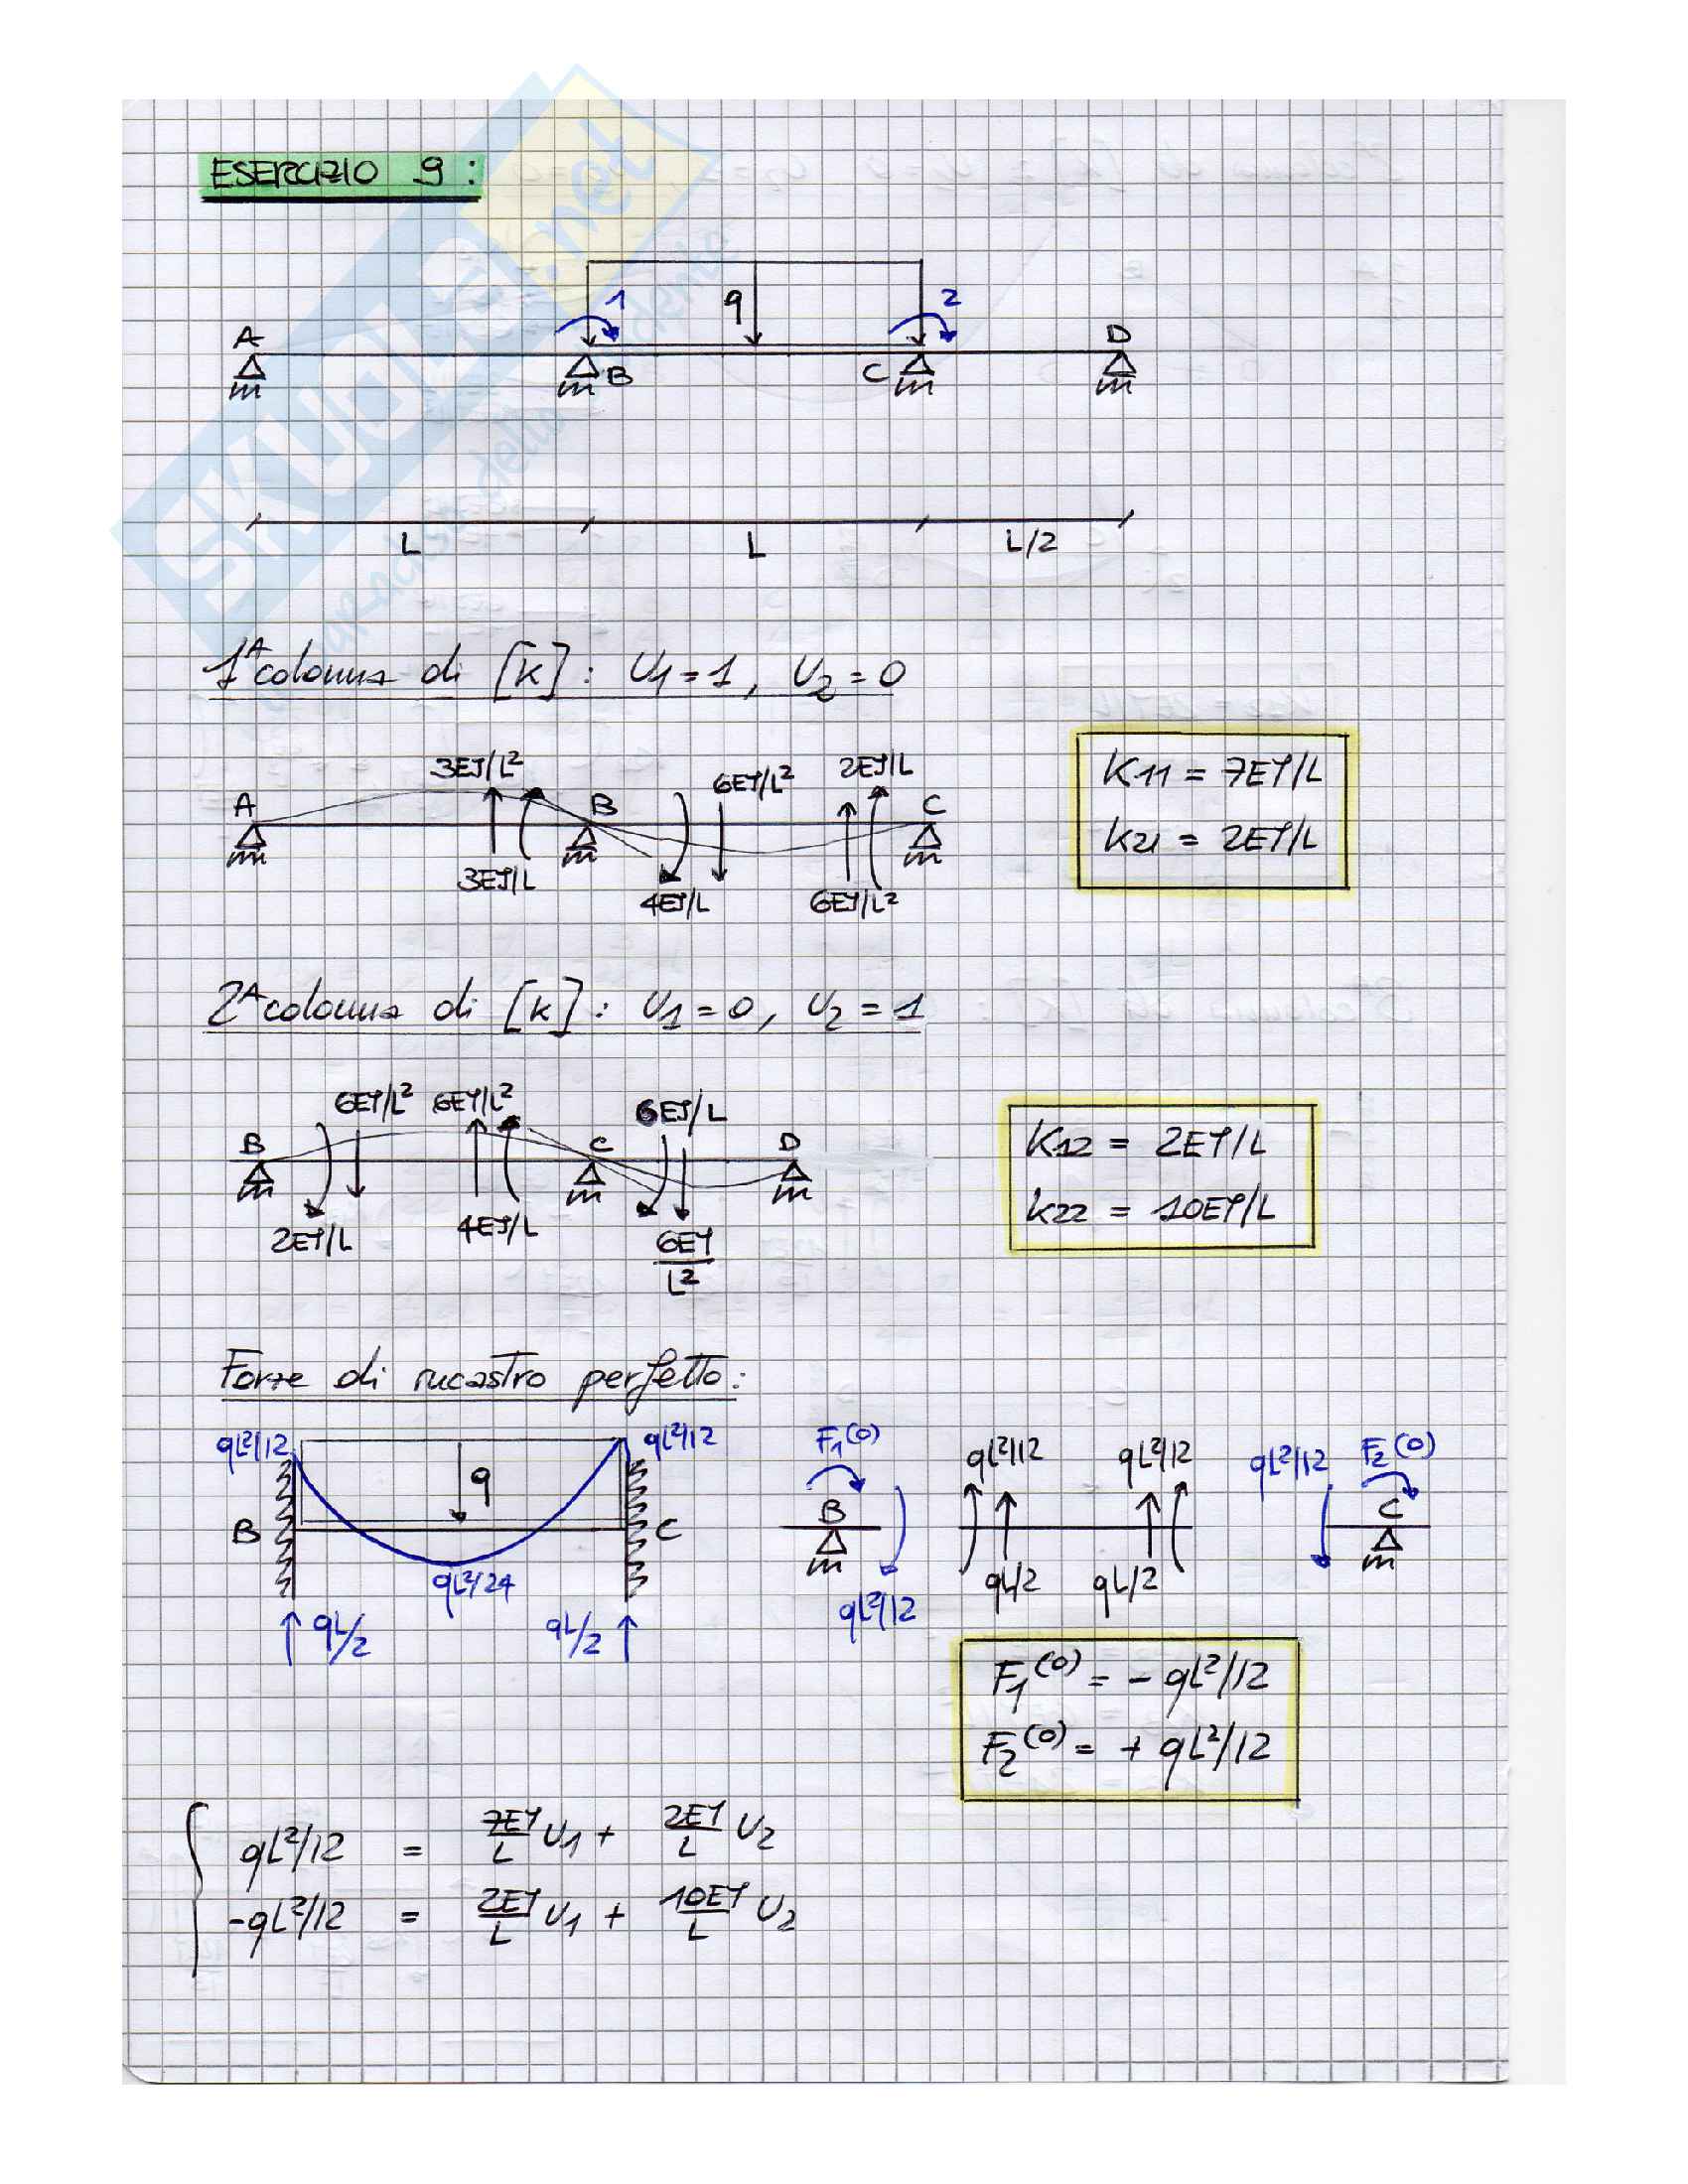 ESERCIZIO 9:
1 q 2
A D
B C
L L L/2
1ᴬ colonna di [k]: U1 = 1, U2 = 0
3EJ/L² 6EJ/L² 2EJ/L
A B C
3EJ/L 4EJ/L 6EJ/L²
K11 = 7EJ/L
K21 = 2EJ/L
2ᴬ colonna di [k]: U1 = 0, U2 = 1
6EJ/L² 6EJ/L² 6EJ/L
B C D
2EJ/L 4EJ/L 6EJ/L²
K12 = 2EJ/L
K22 = 10EJ/L
Forze di incastro perfetto:
qL²/12 qL²/12
q
B C
qL²/24
qL/2 qL/2
F1(0) qL²/12 qL²/12 qL²/12 F2(0)
B C
qL²/12 qL/2 qL/2
F1(0) = - qL²/12
F2(0) = + qL²/12
qL²/12 = 7EJ/L U1 + 2EJ/L U2
-qL²/12 = 2EJ/L U1 + 10EJ/L U2
SKUOLA.net